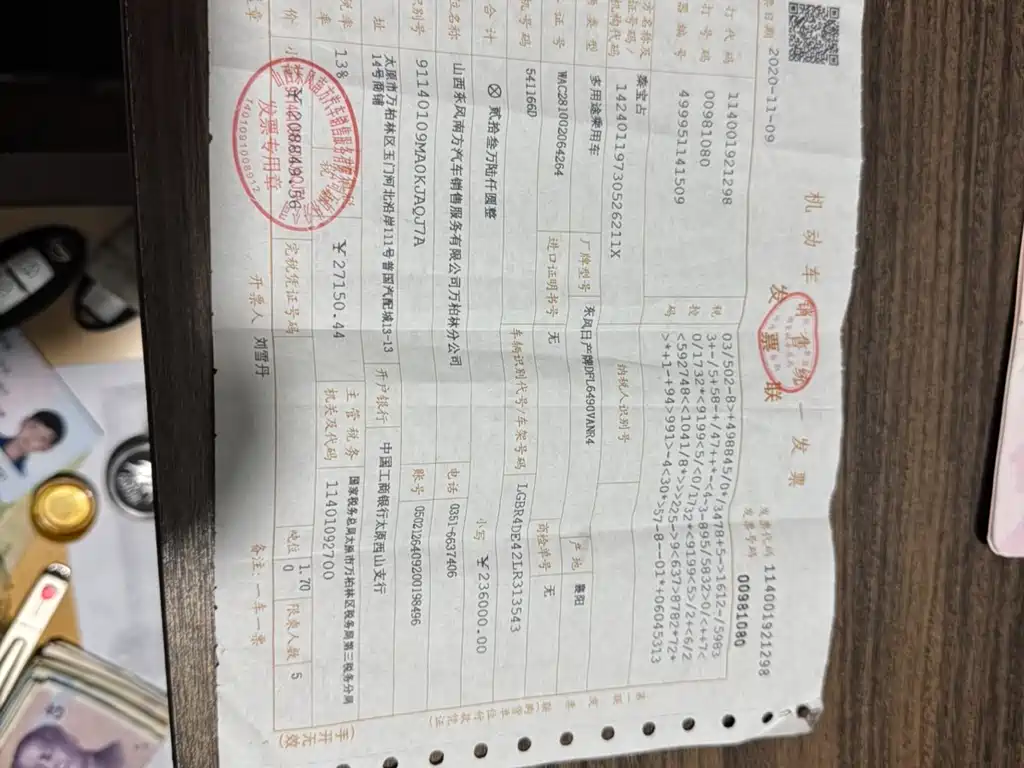 机动车销售统一发票
发票联
发票代码 114001921298
发票号码 00981080
票日期 2020-11-09
打代码 114001921298
打号码 00981080
票编号 499951141509
税控码
03/502-8>+498845/0*/3478+5->1612-/5983
3+-/5+58-+/47++*-<4-3-895/5832>0/<++7<
0/1732*<9199<5/<0/1732*<9199<5>/2+<6/2
<592748<<1041/8*>>>225>9<637>8782*72+
>*+1-+94>991>-4<30*>57-8--01*+06045313
方名称及
证号码/
机构代码
秦宝占
14240119730526211X
纳税人识别号
类型 多用途乘用车
厂牌型号 东风日产牌DFL6490VANR4
产地 襄阳
证号 WAC281002064264
进口证明书号 无
商检单号 无
机号码 541166D
车辆识别代号/车架号码 LGBR4DE42LR313543
合计 ⊗ 贰拾叁万陆仟圆整
小写 ¥236000.00
位名称 山西东风南方汽车销售服务有限公司万柏林分公司
电话 0351-6637406
识别号 91140109MA0KJAQJ7A
账号 0502126409200198496
址 太原市万柏林区玉门河北沿岸111号普国汽配城13-13
14号商铺
开户银行 中国工商银行太原西山支行
税率 13%
税额 ¥27150.44
主管税务
机关及代码
国家税务总局太原市万柏林区税务局第三税务分局
11401092700
价
小写 ¥208849.56
完税凭证号码
吨位 1.70
0
限乘人数 5
发票专用章
开票人 刘雪丹
备注:一车一票
(手开无效)